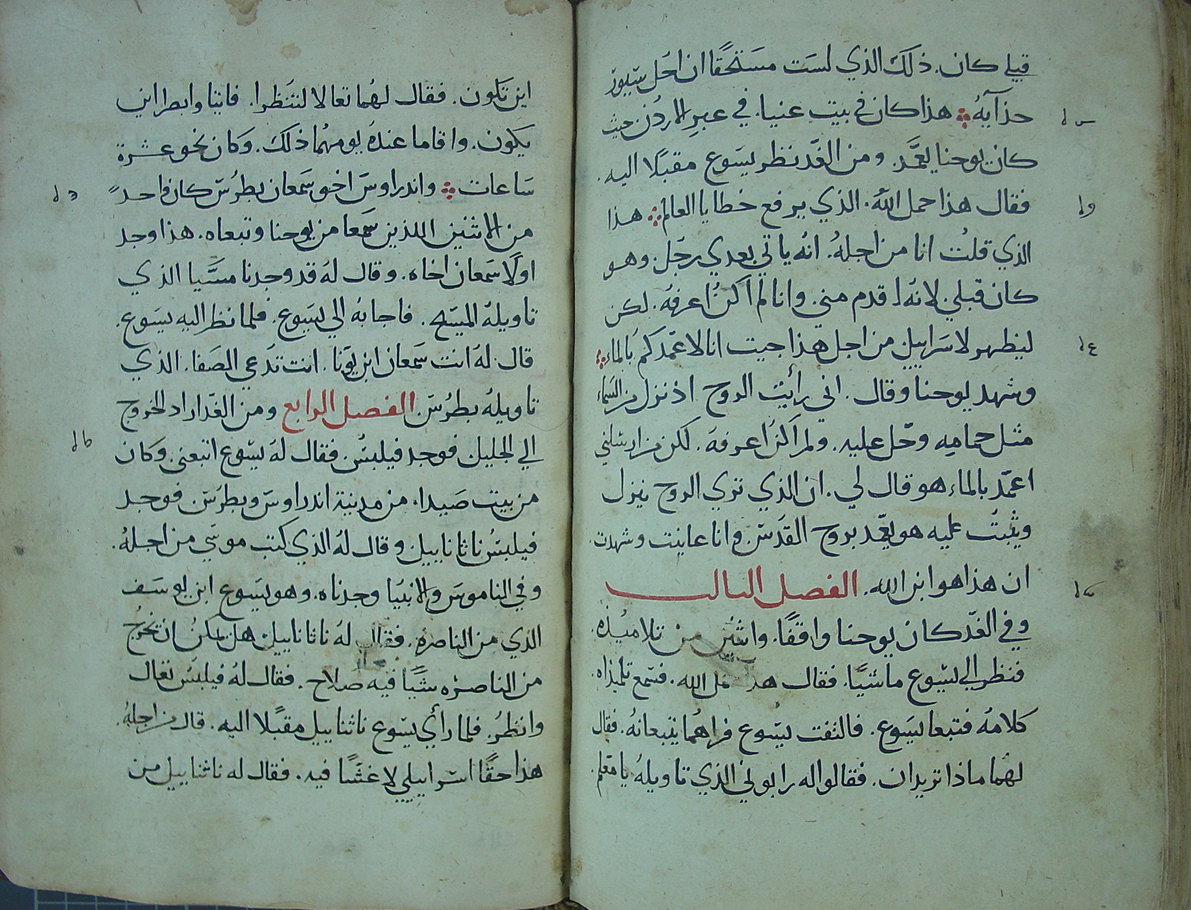 قبلي كان. ذلك الذي لست مستحقا ان احل سيور
حذآيه هذا كان في بيت عنيا. في عبر الاردن حيث
كان يوحنا يعمد. ومن الغد نظر يسوع مقبلا اليه.
فقال هذا حمل الله. الذي يرفع خطايا العالم هذا
الذي قلت انا من اجله. انه ياتي بعدي رجل. وهو
كان قبلي لانه اقدم مني. وانا لم اكن اعرفه. لكن
ليظهر لاسراييل من اجل هذا جيت انا لاعمدكم بالماء
وشهد يوحنا وقال. اني رأيت الروح اذ نزل من السماء
مثل حمامه وحل عليه. ولم اكن اعرفه. لكن من ارسلني
اعمد بالماء هو قال لي. ان الذي تري الروح ينزل
ويثبت عليه هو يعمد بروح القدس وانا عاينت وشهدت
ان هذا هو ابن الله. الفصل الثالث
وفي الغد كان يوحنا واقفا. واثنين من تلاميذه.
فنظر الي يسوع ماشيا. فقال هذا حمل الله. فسمع تلميذاه
كلامه فتبعا يسوع. فالتفت يسوع فراهما يتبعانه. فقال
لهما ماذا تريدان. فقالوا له رابوني الذي تاويله يا معلم
اين تكون. فقال لهما تعالا لتنظرا. فاتيا وابصرا اين
يكون. واقاما عنده يومهما ذلك. وكان نحو عشرة
ساعات واندراوس اخو سمعان بطرس كان واحد
من الاثنين اللذين سمعا من يوحنا وتبعاه. هذا وجد
اولا سمعان اخاه. وقال له قد وجدنا مسيا الذي
تاويله المسيح. فاجابه الي يسوع. فلما نظر اليه يسوع.
قال له انت سمعان ابن يونا. انت تدعي الصفا. الذي
تاويله بطرس الفصل الرابع ومن الغد اراد الخروج
الي الجليل فوجد فيلبس فقال له يسوع اتبعني. وكان
من بيت صيدا. من مدينة اندراوس وبطرس. فوجد
فيلبس ناثاناييل وقال له الذي كتب موسي من اجله.
وفي الناموس والانبيا وجدناه. وهو يسوع ابن يوسف
الذي من الناصره. فقال له ناثاناييل هل يمكن ان يخرج
من الناصره شيا فيه صلاح. فقال له فيلبس تعال
وانظر. فلما رأي يسوع ناثناييل مقبلا اليه. قال من اجله.
هذا حقا اسراييلي لا غش فيه. فقال له ناثناييل من